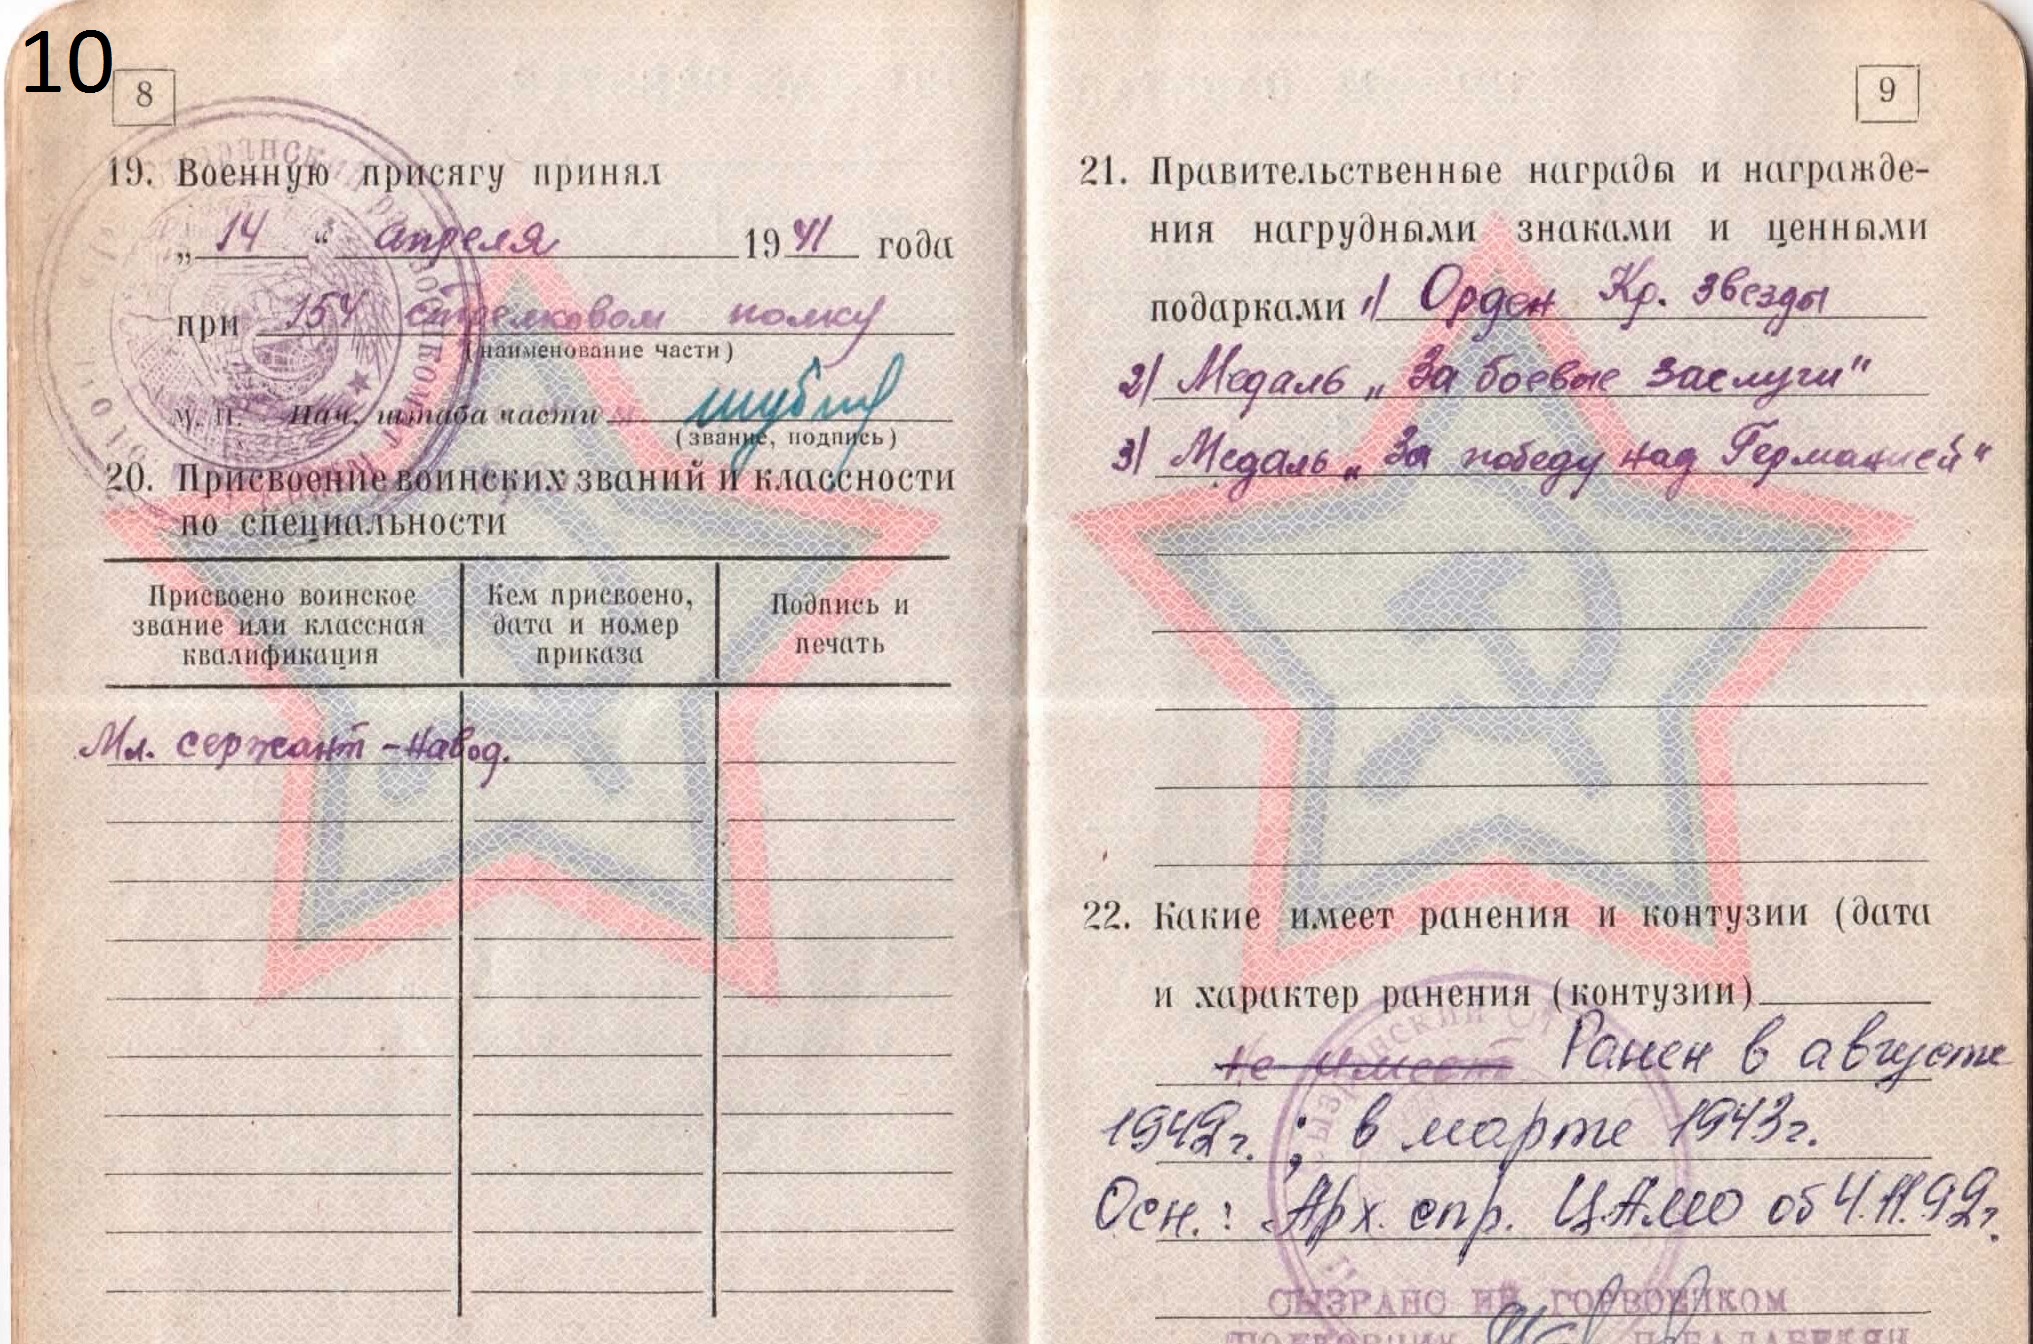 10
8
19. Военную присягу принял
„ 14 “ апреля 1941 года
при 154 стрелковом полку
(наименование части)
М. П. Нач. штаба части
(звание, подпись)
20. Присвоение воинских званий и классности
по специальности
Присвоено воинское
звание или классная
квалификация
Кем присвоено,
дата и номер
приказа
Подпись и
печать
Мл. сержант - навод.
9
21. Правительственные награды и награжде-
ния нагрудными знаками и ценными
подарками 1) Орден Кр. звезды
2) Медаль „За боевые заслуги"
3) Медаль „За победу над Германией"
22. Какие имеет ранения и контузии (дата
и характер ранения (контузии)
не имеет Ранен в августе
1942г. ; в марте 1943г.
Осн.: Арх. спр. ЦАМО об 4.11.92г.
СЫЗРАНС ИЙ ГОРВОЕНКОМ